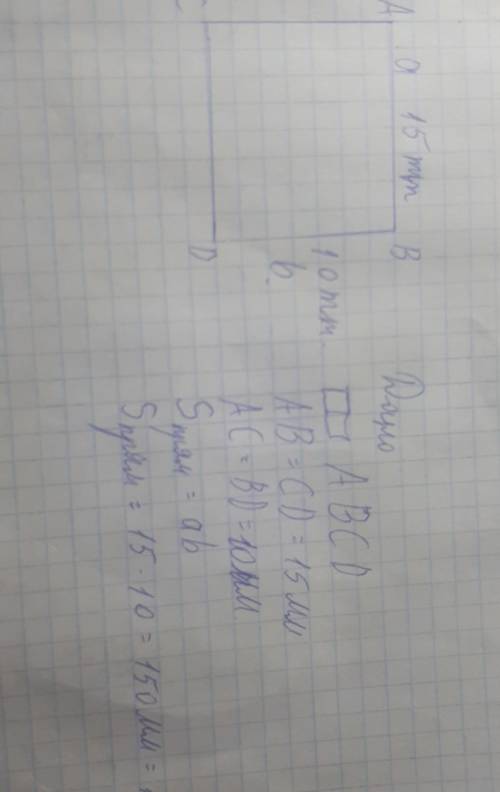 A a 15 mm B
10 mm
b
D
Дано
▭ ABCD
AB = CD = 15 мм
AC = BD = 10 мм
Sпрям = ab
Sпрям = 15 · 10 = 150 мм =